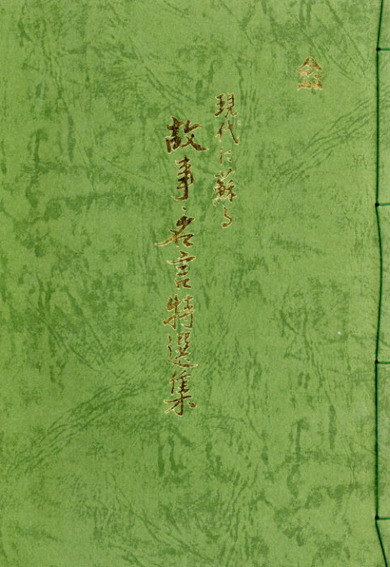 現代に蘇る
故事・名言特選集